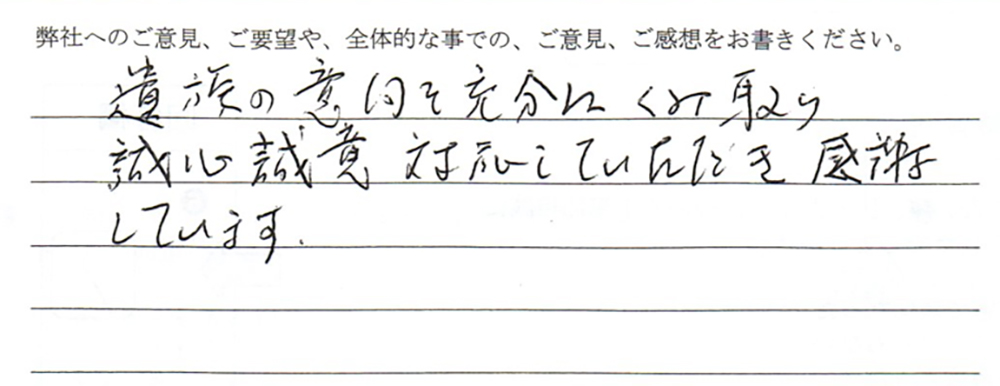 弊社へのご意見、ご要望や、全体的な事での、ご意見、ご感想をお書きください。
遺族の意向を充分にくみ取り
誠心誠意対応していただき感謝
しています.